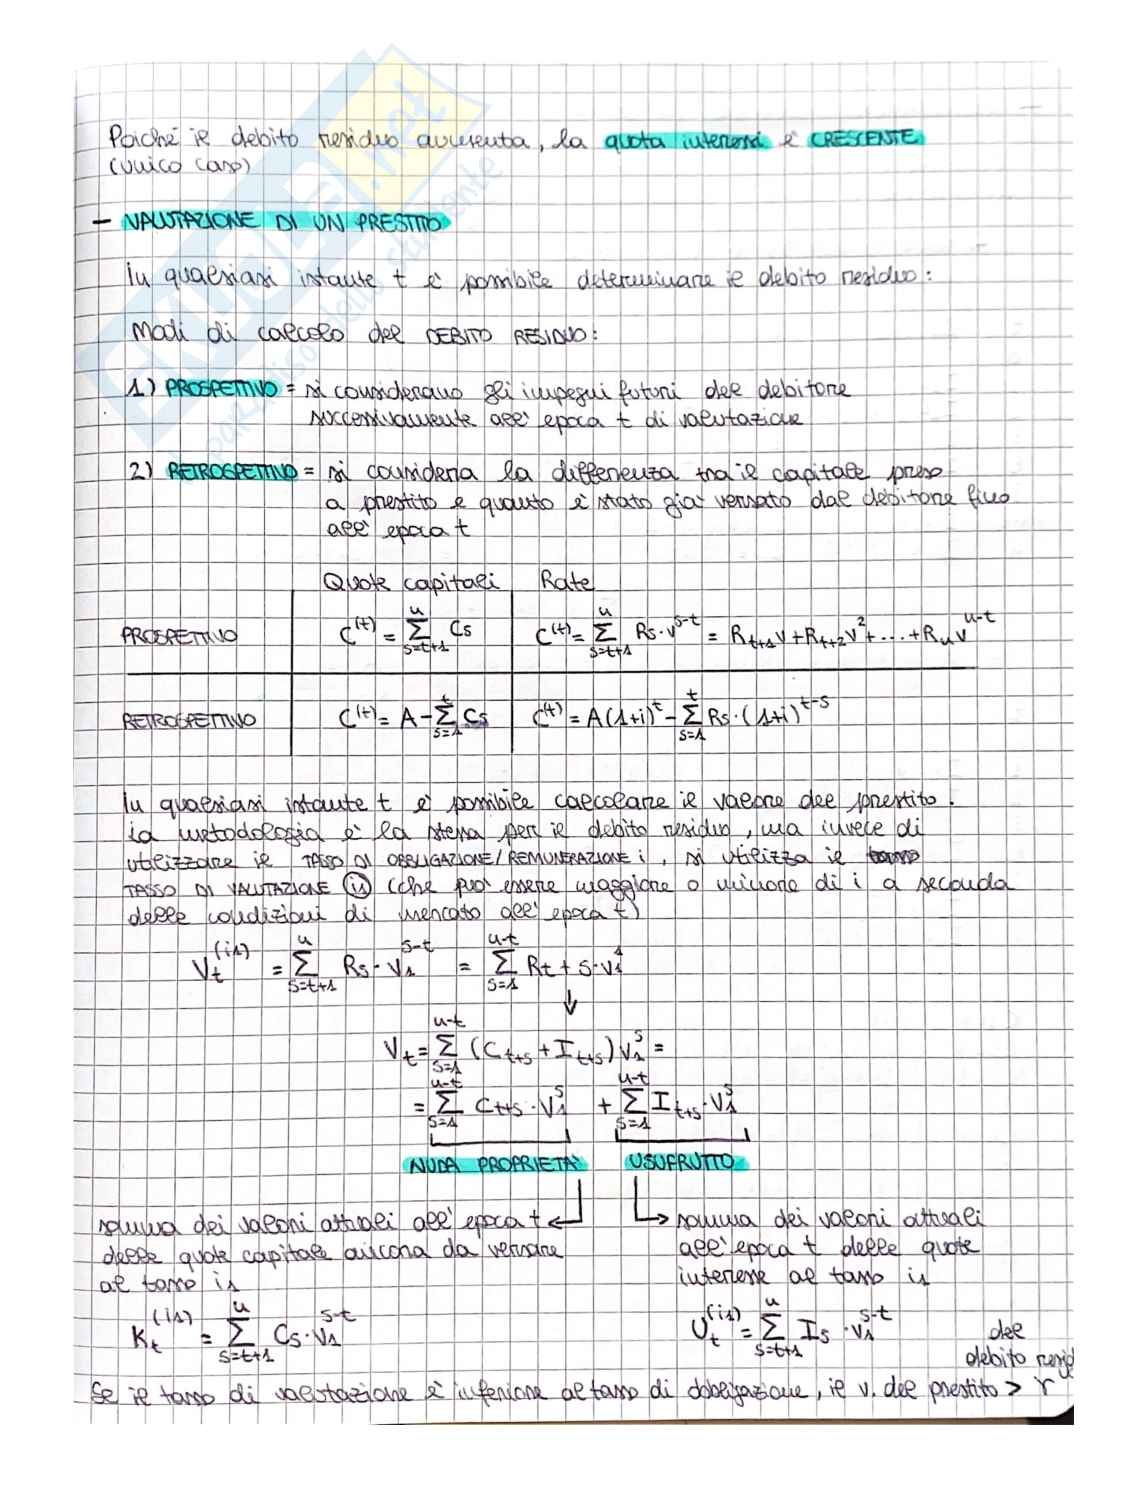 Poiché il debito residuo aumenta, la quota interessi è CRESCENTE
(unico caso)
- VALUTAZIONE DI UN PRESTITO
In qualsiasi istante t è possibile determinare il debito residuo:
Modi di calcolo del DEBITO RESIDUO:
1) PROSPETTIVO = si considerano gli impegni futuri del debitore
successivamente all'epoca t di valutazione
2) RETROSPETTIVO = si considera la differenza tra il capitale preso
a prestito e quanto è stato già versato dal debitore fino
all'epoca t
Quote capitali Rate
PROSPETTIVO C^(t) = Σ_{s=t+1}^{n} Cs C^(t) = Σ_{s=t+1}^{n} Rs·v^{s-t} = R_{t+1}v + R_{t+2}v^2 + ... + R_n v^{n-t}
RETROSPETTIVO C^(t) = A - Σ_{s=1}^{t} Cs C^(t) = A(1+i)^t - Σ_{s=1}^{t} Rs·(1+i)^{t-s}
In qualsiasi istante t è possibile calcolare il valore del prestito.
La metodologia è la stessa per il debito residuo, ma invece di
utilizzare il TASSO DI OBBLIGAZIONE/REMUNERAZIONE i, si utilizza il tasso
TASSO DI VALUTAZIONE i1 (che può essere maggiore o minore di i a seconda
delle condizioni di mercato all'epoca t)
V_t^(i1) = Σ_{s=t+1}^{n} Rs·v_1^{s-t} = Σ_{s=1}^{n-t} Rt+s·v_1^s
↓
V_t = Σ_{s=1}^{n-t} (C_{t+s} + I_{t+s}) v_1^s =
= Σ_{s=1}^{n-t} C_{t+s}·v_1^s + Σ_{s=1}^{n-t} I_{t+s}·v_1^s
NUDA PROPRIETA' USUFRUTTO
somma dei valori attuali all'epoca t
delle quote capitale ancora da versare
al tasso i1
K_t^(i1) = Σ_{s=t+1}^{n} Cs·v_1^{s-t}
somma dei valori attuali
all'epoca t delle quote
interesse al tasso i1
U_t^(i1) = Σ_{s=t+1}^{n} Is·v_1^{s-t}
del
debito resid
Se il tasso di valutazione è inferiore al tasso di obbligazione, il v. del prestito >